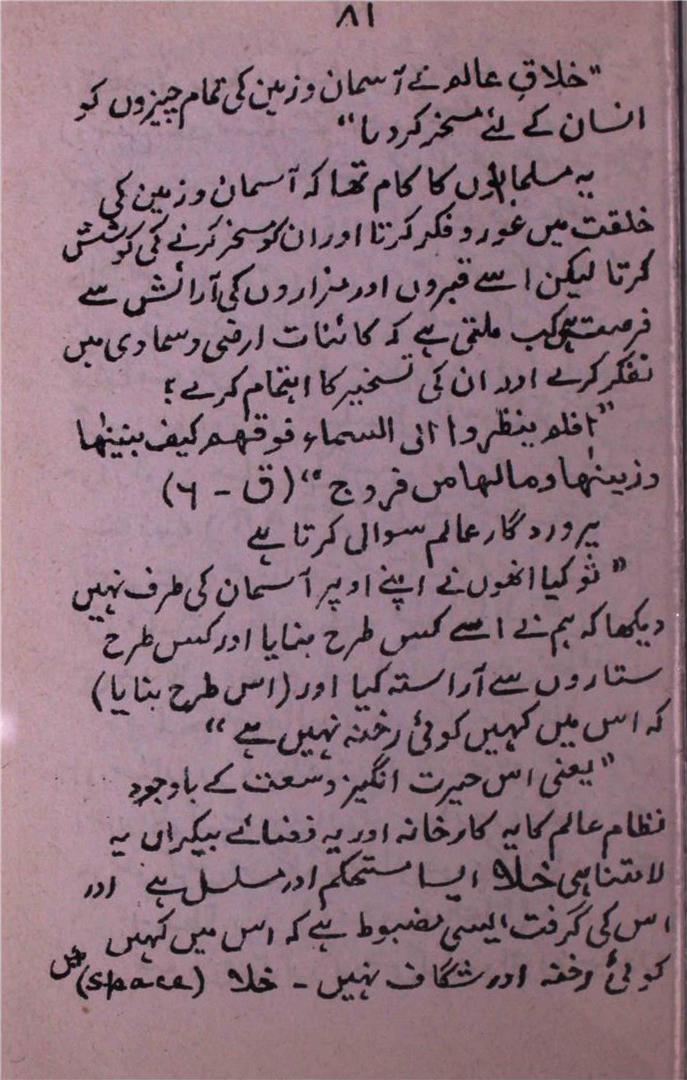 ۸۱
"خلاقِ عالم نے آسمان و زمین کی تمام چیزوں کو
انسان کے لئے مسخر کر دیا"
یہ مسلمانوں کا کام تھا کہ آسمان و زمین کی
خلقت میں غور و فکر کرتا اور ان کو مسخر کرنے کی کوشش
کرتا لیکن اسے قبروں اور مزاروں کی آرائش سے
فرصت ہی کب ملتی ہے کہ کائنات ارضی و سماوی میں
تفکر کرے اور ان کی تسخیر کا اہتمام کرے؛
"افلم ینظروا الی السماء فوقھم کیف بنینٰھا
وزینٰھا ومالھا من فروج" (ق - ۶)
پروردگار عالم سوال کرتا ہے
"تو کیا انھوں نے اپنے اوپر آسمان کی طرف نہیں
دیکھا کہ ہم نے اسے کس طرح بنایا اور کس طرح
ستاروں سے آراستہ کیا اور (اس طرح بنایا)
کہ اس میں کہیں کوئی رخنہ نہیں ہے"
"یعنی اس حیرت انگیز وسعت کے باوجود
نظام عالم کا یہ کارخانہ اور یہ فضائے بیکراں یہ
لامتناہی خلا ایسا مستحکم اور مسلسل ہے اور
اس کی گرفت ایسی مضبوط ہے کہ اس میں کہیں
کوئی رخنہ اور شگاف نہیں - خلا (space) میں